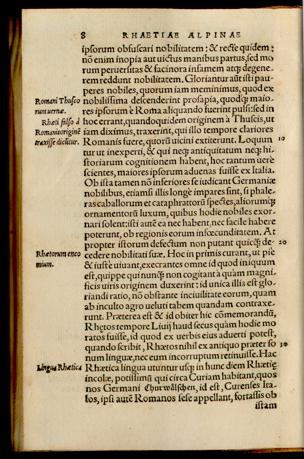 8 RHAETIAE ALPINAE
ipsorum obfuscari nobilitatem: & recte quidem:
nõ enim inopia aut uictus manibus partus, sed mo
rum peruersitas & facinora infamem atq; degene-
rem reddunt nobilitatem. Gloriantur aũt isti pau-
peres nobiles, quorum iam meminimus, quod ex
nobilissima descenderint prosapia, quodq; maio-
res ipsorum è Roma aliquando fuerint pulsi: sed in
hoc errant, quandoquidem originem à Thuscis, ut
iam diximus, traxerint, qui illo tempore clariores
Romanis fuere, quorũ uicini extiterunt. Loquun
tur ut inexperti, & qui neq; antiquitatum neq; hi-
storiarum cognitionem habent, hoc tantum uere
scientes, maiores ipsorum aduenas fuisse ex Italia.
Ob ista tamen nõ inferiores se iudicant Germaniæ
nobilibus, etiamsi illis longè impares sint, si phale-
ras caballorum et cataphractorũ species, aliorumq;
ornamentorũ luxum, quibus hodie nobiles exor-
nari solent: isti autẽ ea nec habent, nec facile habere
poterunt, ob regionis eorum infœcunditatem. At
propter istorum defectum non putant quicq̃ de-
cedere nobilitati suæ. Hoc in primis curant, ut piè
& iustè uiuant, execrantes omne id quod iniquum
est, quippe qui nunq̃ non cogitant à quàm magni-
ficis uiris originem duxerint: id unica illis est glo-
riandi ratio, nõ obstante inciuilitate eorum, quam
ab inculto agro ueluti tabem quandam contraxe-
runt. Præterea est & id obiter hic cõmemorandũ,
Rhętos tempore Liuij haud secus quàm hodie mo
ratos fuisse, id quod ex uerbis eius aduerti potest,
quando scribit, Rhætos nihil ex antiquo præter so
num linguæ, nec eum incorruptum retinuisse. Hac
Rhætica lingua utuntur usq; in hunc diem Rhætiæ
incolæ, potissimũ qui circa Curiam habitant, quos
nos Germani Churwälschen, id est, Curenses Ita-
los, ipsi autẽ Romanos sese appellant, fortassis ob
istam
Romani Thusco
rum uernæ.
Rhæti falsò à
Romanis originẽ
traxisse dicitur.
10
20
Rhætorum enco
mium.
30
Lingua Rhætica